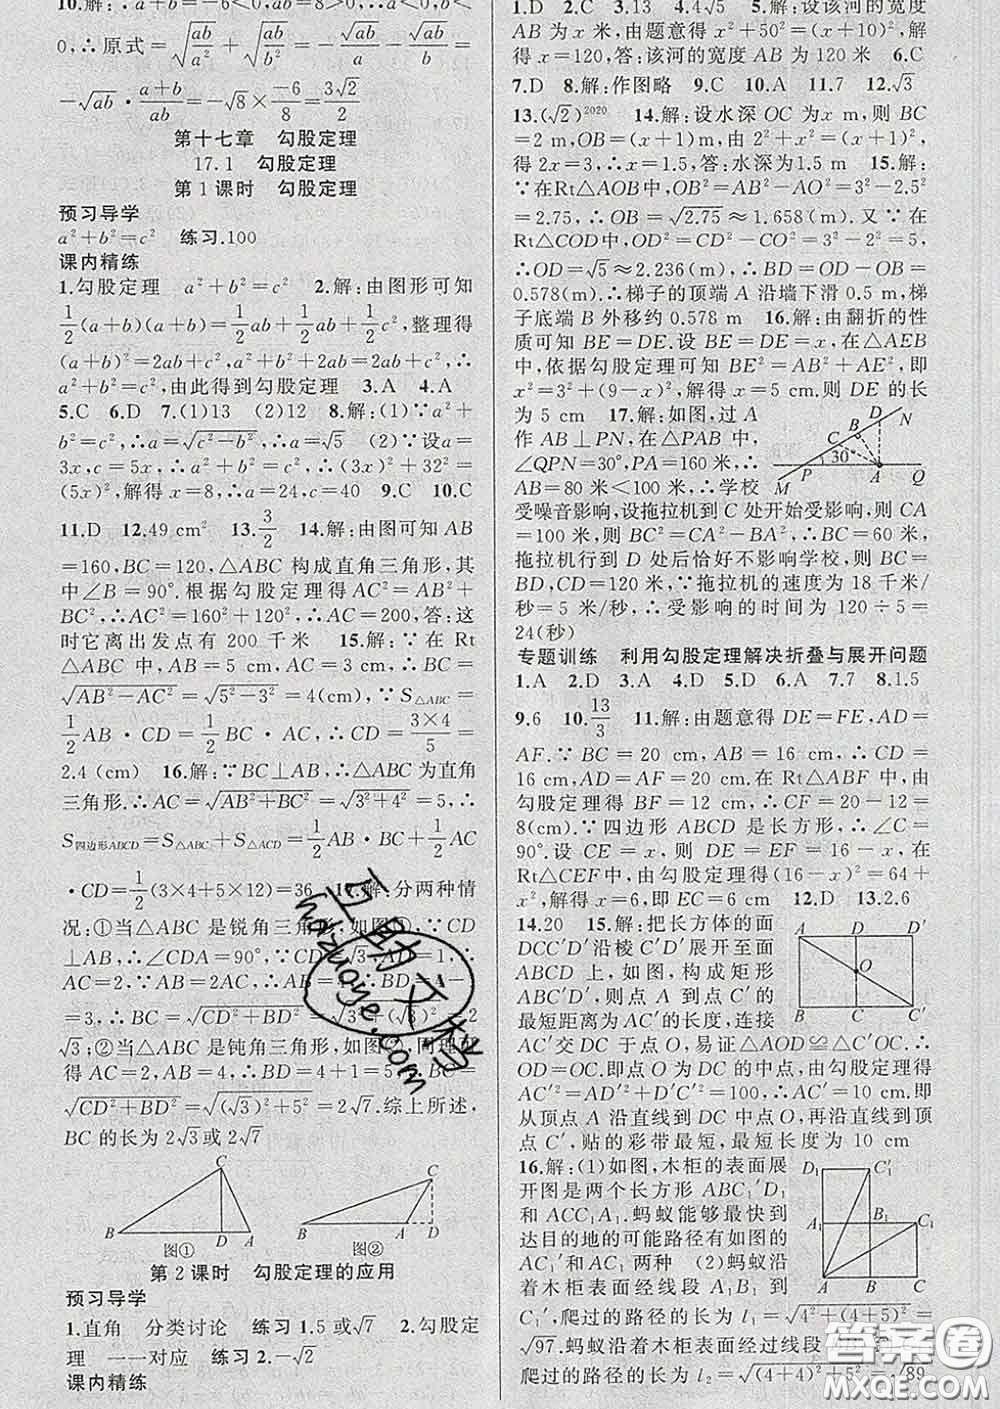 10.解:∵a+b=-6<0,ab=8>0,∴a<0,b<
0,∴原式=√(ab/a²)+√(ab/b²)=-√ab/a-√ab/b=
-√ab·(a+b)/ab=-√8×(-6)/8=3√2/2
第十七章 勾股定理
17.1 勾股定理
第1课时 勾股定理
预习导学
a²+b²=c² 练习.100
课内精练
1.勾股定理 a²+b²=c² 2.解:由图形可知
1/2(a+b)(a+b)=1/2ab+1/2ab+1/2c²,整理得
(a+b)²=2ab+c²,a²+b²+2ab=2ab+c²,∴
a²+b²=c²,由此得到勾股定理 3.A 4.A
5.C 6.D 7.(1)13 (2)12 8.解:(1)∵a²+
b²=c²,∴a=√(c²-b²),∴a=√5 (2)∵设a=
3x,c=5x,∴a²+b²=c²,∴(3x)²+32²=
(5x)²,解得x=8,∴a=24,c=40 9.C 10.C
11.D 12.49 cm² 13.3/2 14.解:由图可知AB
=160,BC=120,△ABC构成直角三角形,其
中∠B=90°.根据勾股定理得AC²=AB²+
BC²,∴AC²=160²+120²,∴AC=200,答:这
时它离出发点有200千米 15.解:∵在Rt
△ABC中,AB=5 cm,AC=3 cm,∴BC=
√(AB²-AC²)=√(5²-3²)=4(cm).∵S△ABC=
1/2AB·CD=1/2BC·AC,∴CD=(3×4)/5=
2.4(cm) 16.解:∵BC⊥AB,∴△ABC为直角
三角形.∴AC=√(AB²+BC²)=√(3²+4²)=5,∴
S四边形ABCD=S△ABC+S△ACD=1/2AB·BC+1/2AC
·CD=1/2(3×4+5×12)=36 17.解:分两种情
况:①当△ABC是锐角三角形,如图①,∵CD
⊥AB,∴∠CDA=90°,∵CD=√3,AD=1,∴
AC=2,∵AB=2AC,∴AB=4,∴BD=4-1
=3,∴BC=√(CD²+BD²)=√(3²+(√3)²)=2
√3;②当△ABC是钝角三角形,如图②,同理可
得AC=2,AB=4,∴BD=4+1=5,∴BC=
√(CD²+BD²)=√((√3)²+5²)=2√7.综上所述,
BC的长为2√3或2√7
C
B D A
图①
C
B A D
图②
第2课时 勾股定理的应用
预习导学
1.直角 分类讨论 练习1.5或√7 2.勾股定
理 一一对应 练习2.-√2
课内精练
1.D 2.C 3.13 4.4√5 5.解:设该河的宽度
AB为x米,由题意得x²+50²=(x+10)²,解得
x=120,答:该河的宽度AB为120米 6.C
7.D 8.解:作图略 9.C 10.A 11.7 12.√3
13.(√2)²⁰²⁰ 14.解:设水深OC为x m,则BC
=2 m,OB=(x+1)m,由x²+2²=(x+1)²,
得2x=3,∴x=1.5,答:水深为1.5m 15.解:
∵在Rt△AOB中,OB²=AB²-AO²=3²-2.5²
=2.75,∴OB=√2.75≈1.658(m).又∵在
Rt△COD中,OD²=CD²-CO²=3²-2²=5,
∴OD=√5≈2.236(m),∴BD=OD-OB≈
0.578(m)∴梯子的顶端A沿墙下滑0.5 m,梯
子底端B外移约0.578 m 16.解:由翻折的性
质可知BE=DE.设BE=DE=x,在△AEB
中,依据勾股定理可知BE²=AB²+AE²,即
x²=3²+(9-x)²,解得x=5 cm.则DE的长
为5 cm 17.解:如图,过A
作AB⊥PN,在△PAB中,
∠QPN=30°,PA=160米,∴
AB=80米<100米,∴学校
受噪音影响,设拖拉机到C处开始受影响,则CA
=100米,则BC²=CA²-BA²,∴BC=60米,
拖拉机行到D处后恰好不影响学校,则BC=
BD,CD=120米,∵拖拉机的速度为18千米/
时=5米/秒,∴受影响的时间为120÷5=
24(秒)
D N
B
C
30°
M P A Q
专题训练 利用勾股定理解决折叠与展开问题
1.A 2.D 3.A 4.D 5.D 6.A 7.7 8.1.5
9.6 10.13/3 11.解:由题意得DE=FE,AD=
AF.∵BC=20 cm,AB=16 cm,∴CD=
16 cm,AD=AF=20 cm.在Rt△ABF中,由
勾股定理得BF=12 cm,∴CF=20-12=
8(cm).∵四边形ABCD是长方形,∴∠C=
90°.设CE=x,则DE=EF=16-x,在
Rt△CEF中,由勾股定理得(16-x)²=64+
x²,解得x=6,即EC=6 cm 12.D 13.2.6
14.20 15.解:把长方体的面
DCC′D′沿棱C′D′展开至面
ABCD上,如图,构成矩形
ABC′D′,则点A到点C′的
最短距离为AC′的长度,连接
AC′交DC于点O,易证△AOD≌△C′OC.∴
OD=OC即点O为DC的中点,由勾股定理得
AC′²=AD′²+D′C′²=100,∴AC′=10 cm.即
从顶点A沿直线到DC中点O,再沿直线到顶点
C′,贴的彩带最短,最短长度为10 cm
A D D′
O
B C C′
16.解:(1)如图,木柜的表面展
开图是两个长方形ABC₁′D₁
和ACC₁A₁.蚂蚁能够最快到
达目的地的可能路径有如图的
AC₁′和AC₁两种 (2)蚂蚁沿
着木柜表面经线段A₁B₁到
C₁′,爬过的路径的长为l₁=√(4²+(4+5)²)=
√97.蚂蚁沿着木柜表面经过线段
爬过的路径的长为l₂=√((4+4)²+5²)=√89
D₁ C₁′
A₁ B₁ C₁
A B C
互助文档
huzuoye.com
答案圈
MXQE.COM